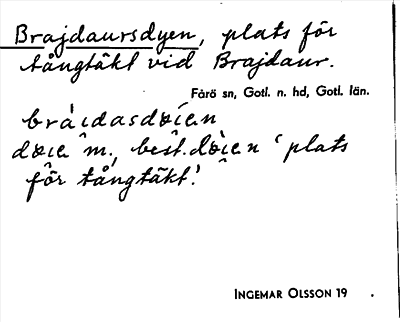 Brajdaursdyen, plats för
tångtäkt vid Brajdaur.
Fårö sn, Gotl. n. hd, Gotl. län.
m., best. 'plats
för tångtäkt.'
INGEMAR OLSSON 19